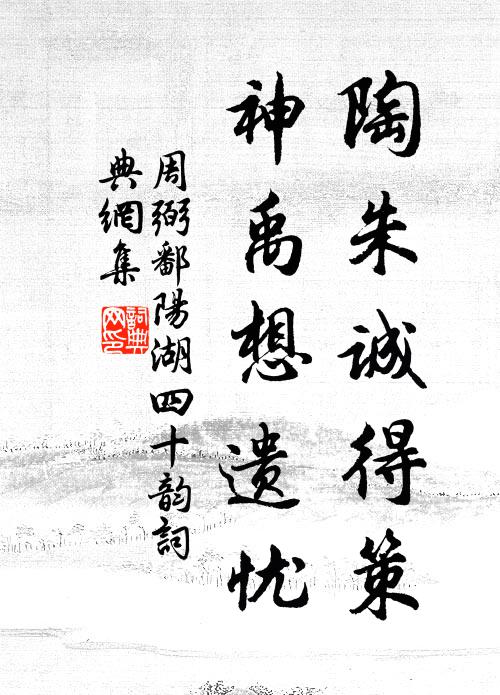 陶朱诚得策
神禹想遗忧
周弼鄱陽湖四十韵詞
典網集
詞典
网印